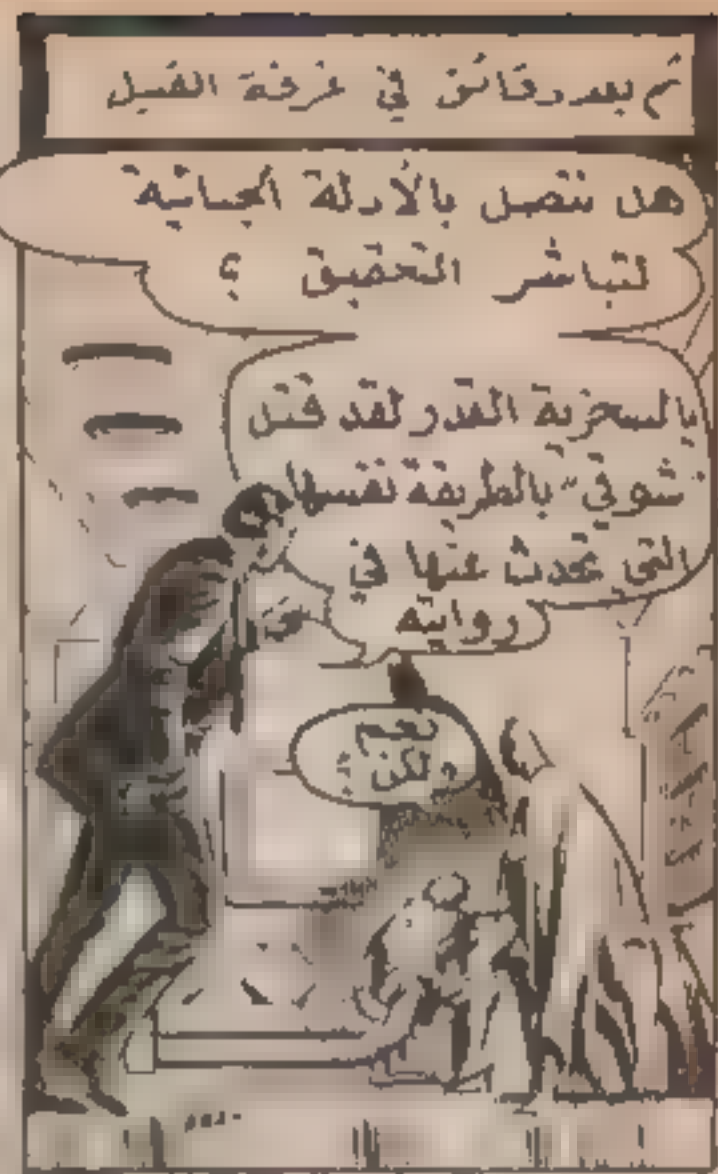 ثم بعد دقائق في غرفة القتيل
هل نتصل بالأدلة الجنائية
لتباشر التحقيق ؟
يالسخرية القدر لقد قتل
"شوقي" بالطريقة نفسها
التي تحدث عنها في
روايته
نعم
ولكن ؟